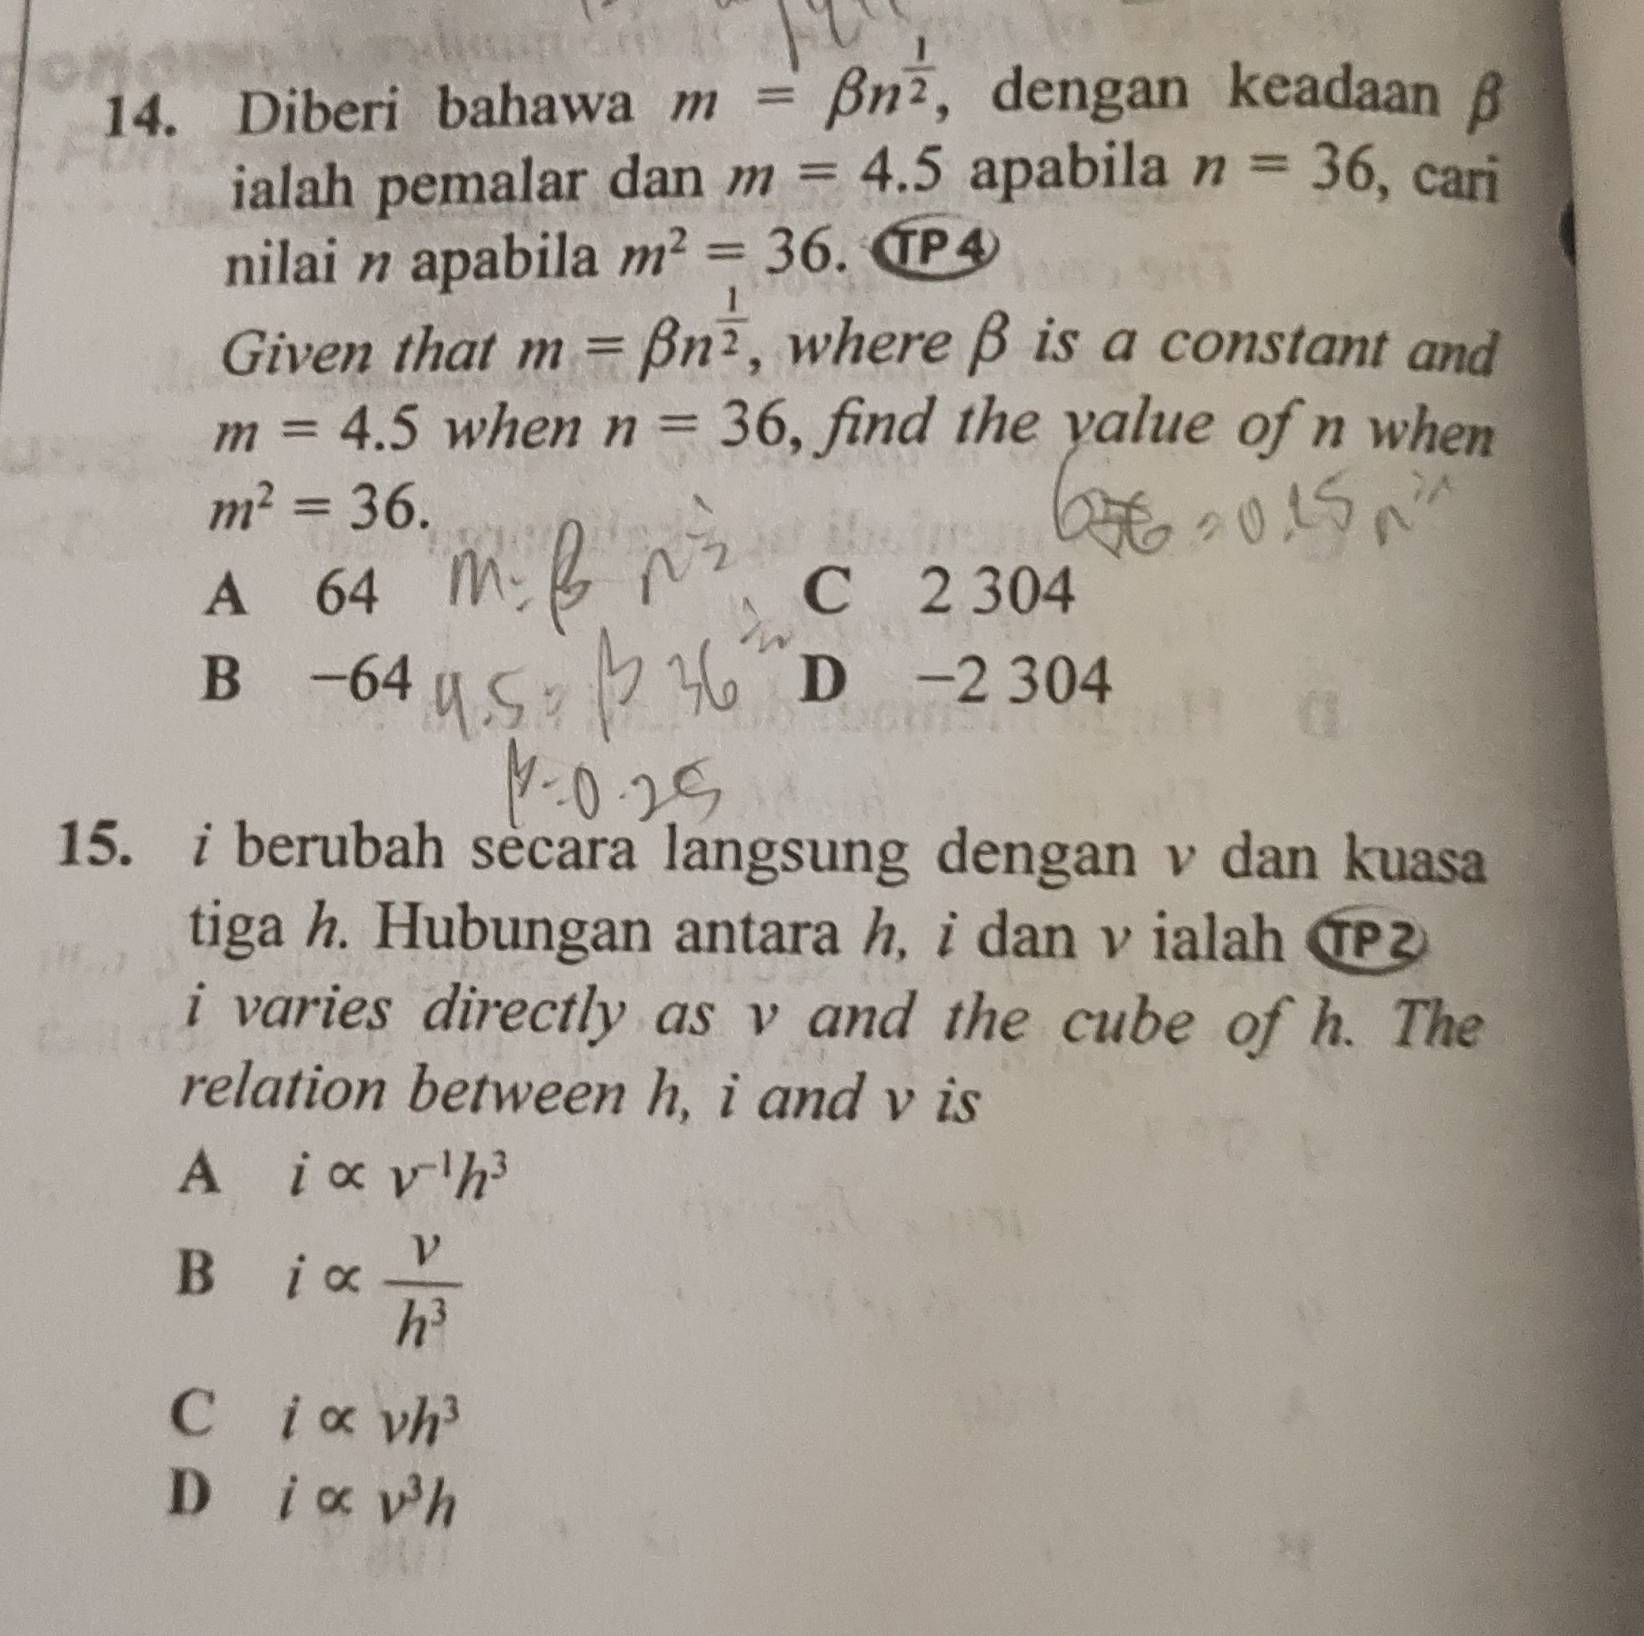 14. Diberi bahawa m = βn^{1/2}, dengan keadaan β
ialah pemalar dan m = 4.5 apabila n = 36, cari
nilai n apabila m² = 36. TP 4
Given that m = βn^{1/2}, where β is a constant and
m = 4.5 when n = 36, find the value of n when
m² = 36.
A 64
C 2 304
B −64
D −2 304
m = β n^{1/2}
4.5 = β 36^{1/2}
β = 0.25
15. i berubah secara langsung dengan v dan kuasa
tiga h. Hubungan antara h, i dan v ialah TP 2
i varies directly as v and the cube of h. The
relation between h, i and v is
A i ∝ v⁻¹h³
B i ∝ v/h³
C i ∝ vh³
D i ∝ v³h